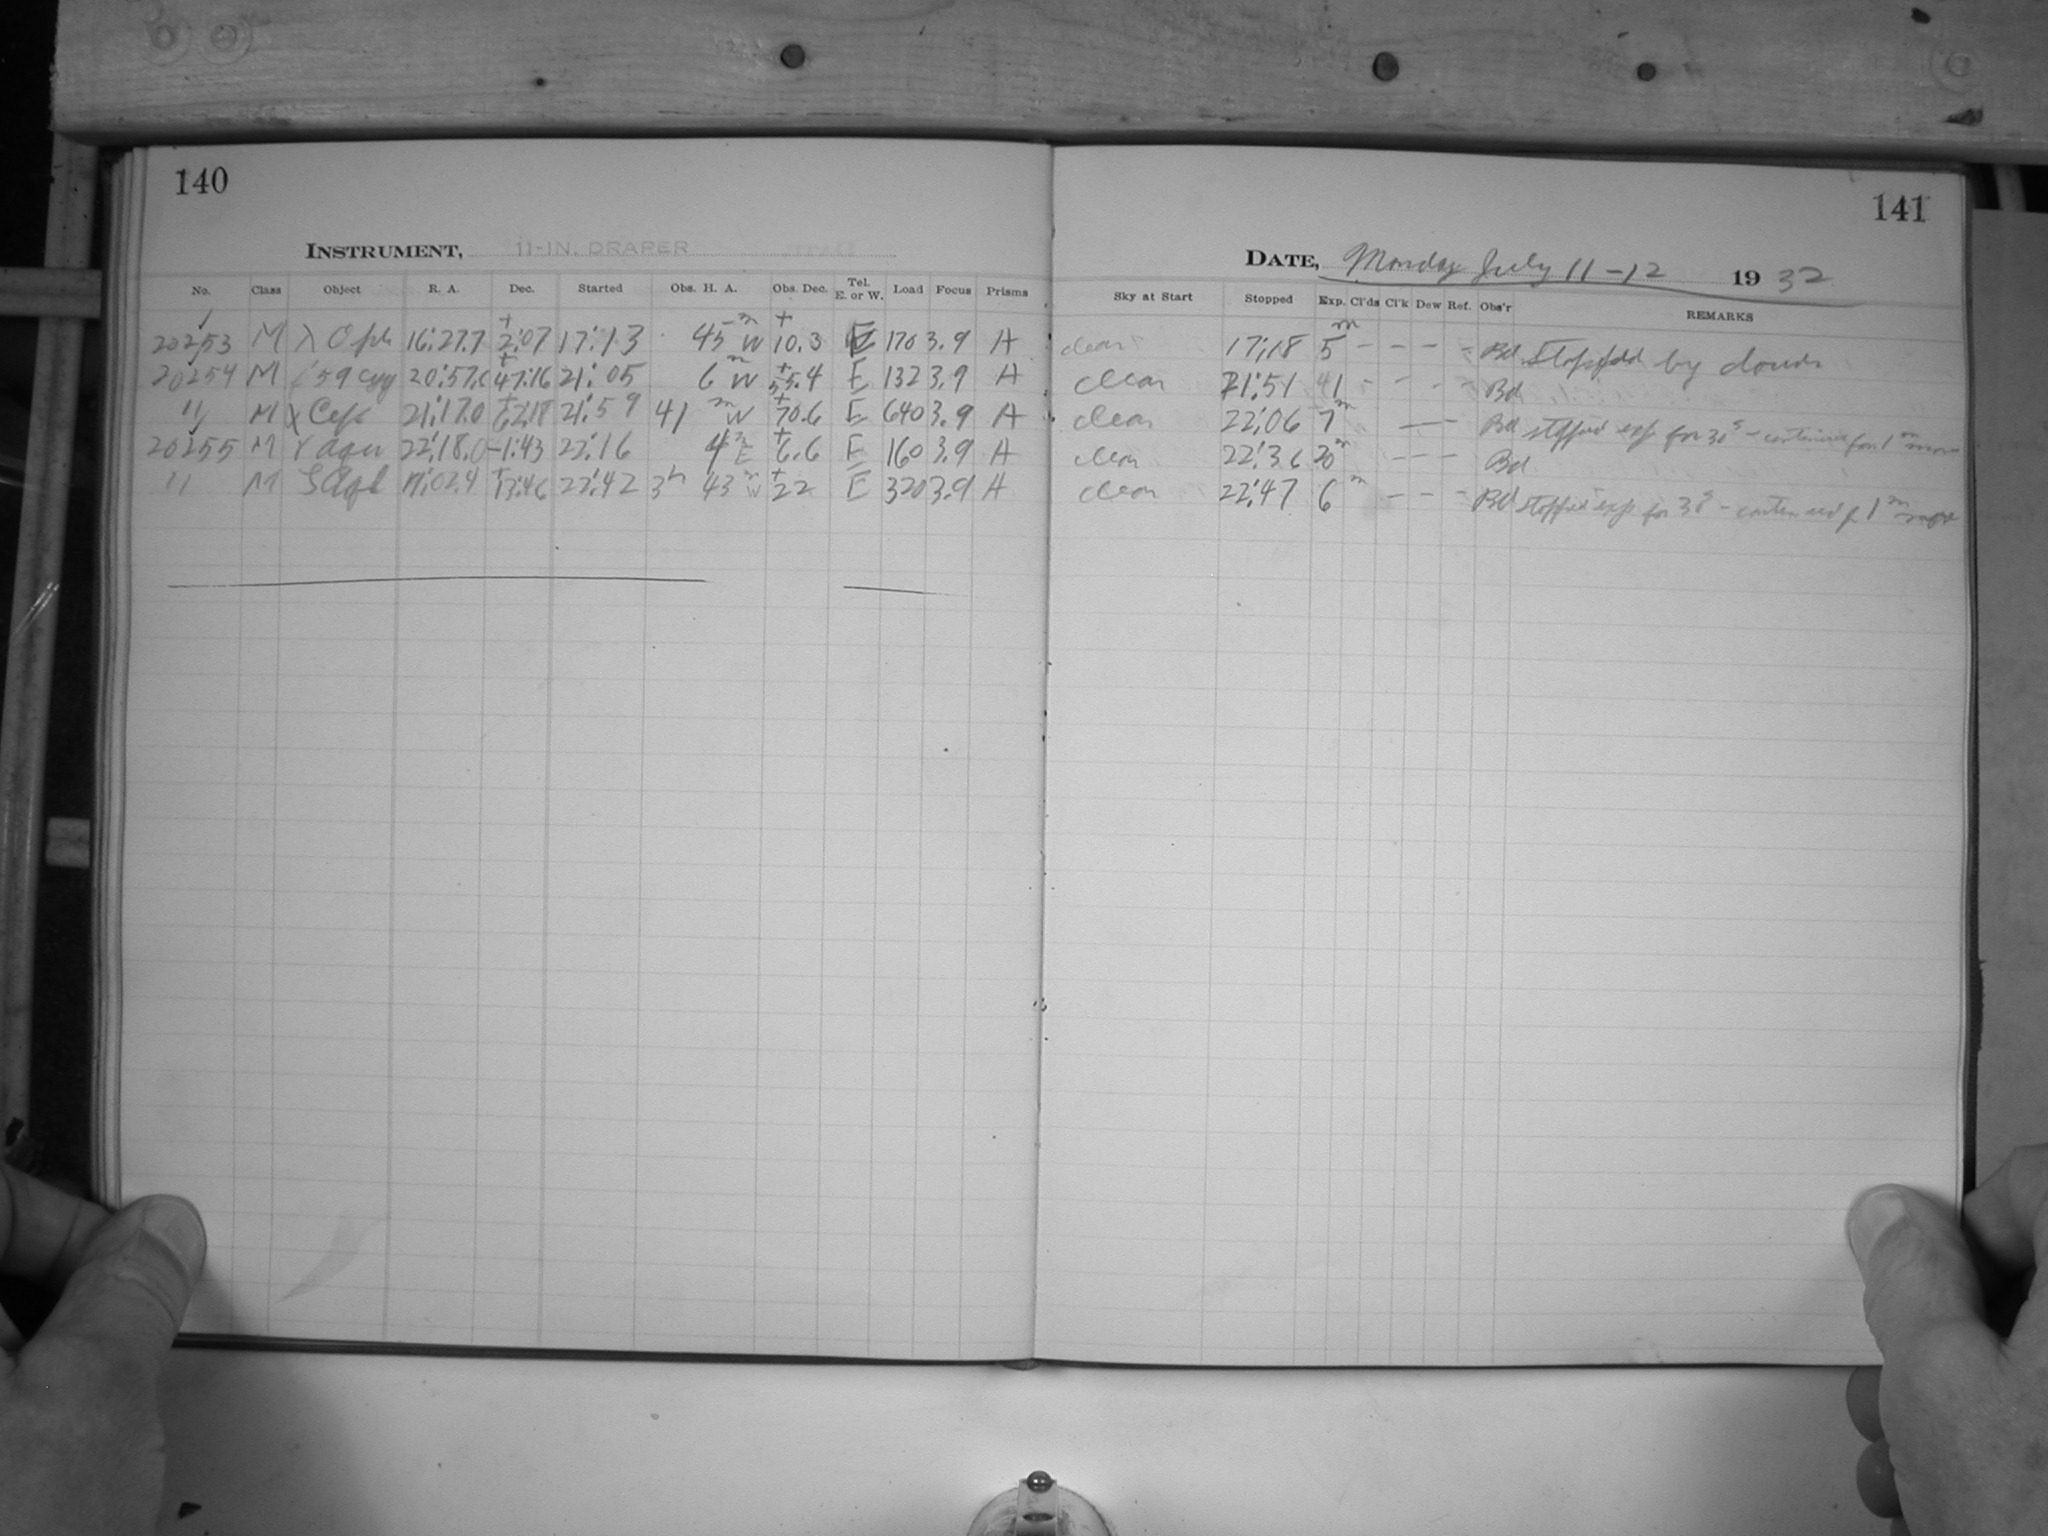 140
INSTRUMENT, 11-IN. DRAPER
No. Class Object R. A. Dec. Started Obs. H. A. Obs. Dec. Tel. E. or W. Load Focus Prisms
20253 M λ Oph 16:27.7 +2:07 17:13 45m W +10.3 E 170 3.9 A
20254 M f'59 Cyg 20:57. +47:16 21:05 6m W +55.4 E 132 3.9 A
" M Cep 21:17.0 +62:18 21:59 41m W +70.6 E 640 3.9 A
20255 M γ aqu 22:18.0 -1:43 22:16 4m E +6.6 E 160 3.9 A
" M ζ Aql 02.4 +13:46 22:42 3h 43m W +22 E 320 3.9 A
141
DATE, Monday July 11-12 1932
Sky at Start Stopped Exp. Cl'ds Cl'k Dew Ref. Obs'r REMARKS
clear 17:18 5m - - - - Bd Stopped by clouds
clear 21:51 41 - - - - Bd
clear 22:06 7m - - Bd stopped exp for 30s - continued for 1m more
clear 22:36 20m - - - Bd
clear 22:47 6m - - - Bd stopped exp for - continued f 1m more